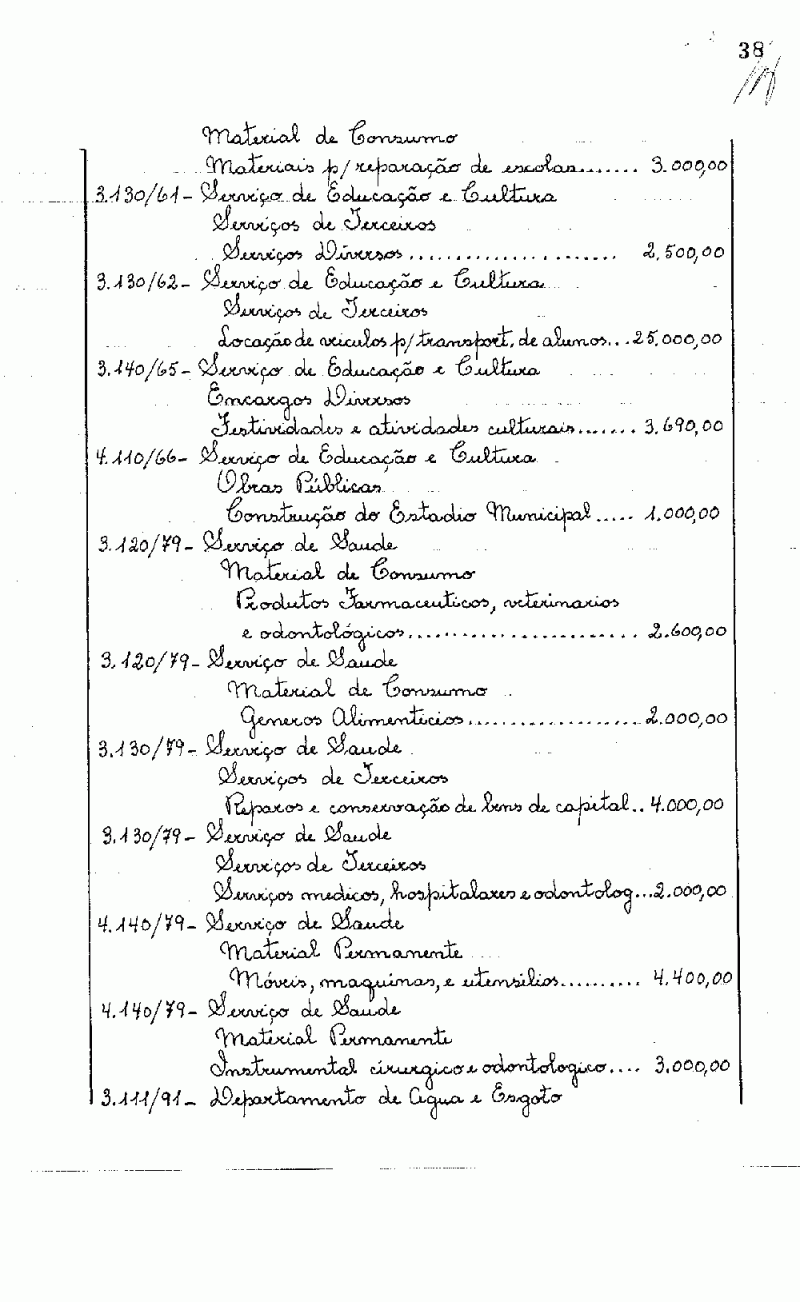 38
Material de Consumo
Materiais p/ reparação de escolas....... 3.000,00
3.130/61- Serviço de Educação e Cultura
Serviços de Terceiros
Serviços Diversos...................... 2.500,00
3.130/62- Serviço de Educação e Cultura
Serviços de Terceiros
Locação de veiculos p/ transport. de alunos...25.000,00
3.140/65- Serviço de Educação e Cultura
Encargos Diversos
Festividades e atividades culturais....... 3.690,00
4.110/66- Serviço de Educação e Cultura
Obras Públicas
Construção do Estadio Municipal..... 1.000,00
3.120/79- Serviço de Saude
Material de Consumo
Produtos Farmaceuticos, veterinarios
e odontológicos........................ 2.600,00
3.120/79- Serviço de Saude
Material de Consumo
Generos Alimenticios...................2.000,00
3.130/79- Serviço de Saude
Serviços de Terceiros
Reparos e conservação de bens de capital.. 4.000,00
3.130/79- Serviço de Saude
Serviços de Terceiros
Serviços medicos, hospitalares e odontolog...2.000,00
4.140/79- Serviço de Saude
Material Permanente
Móveis, maquinas, e utensilios.......... 4.400,00
4.140/79- Serviço de Saude
Material Permanente
Instrumental cirurgico e odontologico.... 3.000,00
3.111/91- Departamento de Agua e Esgoto